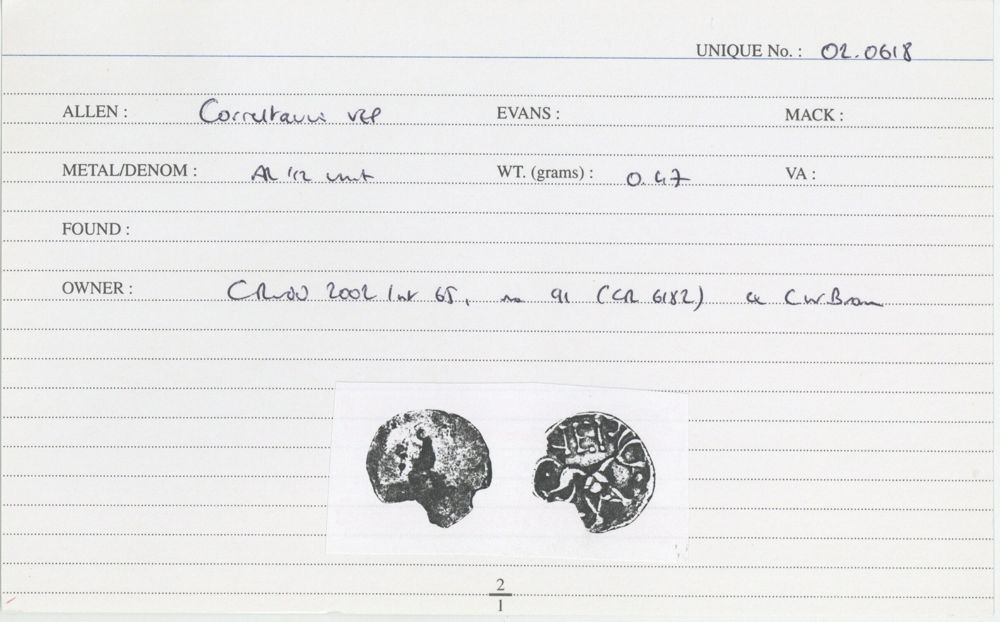 UNIQUE No. : 02.0618
ALLEN : Corieltauvi VEP EVANS : MACK :
METAL/DENOM : AR 1/2 unit WT. (grams) : 0.47 VA :
FOUND :
OWNER : 2002 65, no 91 (CR 6182) ex C W Brown
2
1